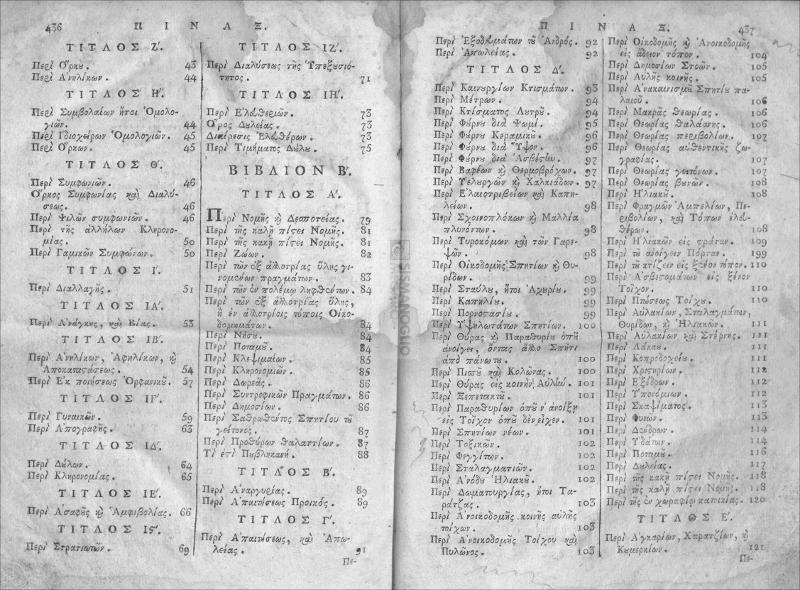 436 ΠΙΝΑΞ.
ΤΙΤΛΟΣ Ζ΄.
Περὶ Ὅρκου. 43
Περὶ Ἀνηλίκων. 44
ΤΙΤΛΟΣ Η΄.
Περὶ Συμβολαίων ἤτοι Ὁμολο-
γιῶν. 44
Περὶ Ἰδιοχείρων Ὁμολογιῶν. 45
Περὶ Ὅρκων. 45
ΤΙΤΛΟΣ Θ΄.
Περὶ Συμφωνιῶν. 46
Ὅρκος Συμφωνίας καὶ Διαλύ-
σεως. 46
Περὶ Ψιλῶν συμφωνιῶν. 46
Περὶ τῆς ἀλλήλων Κληρονο-
μίας. 50
Περὶ Γαμικῶν Συμφώνων. 50
ΤΙΤΛΟΣ Ι΄.
Περὶ Διαλλαγῆς. 51
ΤΙΤΛΟΣ ΙΑ΄.
Περὶ Ἀνάγκης, καὶ Βίας. 53
ΤΙΤΛΟΣ ΙΒ΄.
Περὶ Ἀνηλίκων, Ἀφηλίκων, ϗ
Ἀποκαταστάσεως. 54
Περὶ Ἐκποιήσεως Ὀρφανικοῦ. 57
ΤΙΤΛΟΣ ΙΓ΄.
Περὶ Γυναικῶν. 59
Περὶ Ἀπογραφῆς. 63
ΤΙΤΛΟΣ ΙΔ΄.
Περὶ Δούλων. 64
Περὶ Κληρονομίας. 65
ΤΙΤΛΟΣ ΙΕ΄.
Περὶ Ἀσαφῆς ϗ Ἀμφιβολίας. 66
ΤΙΤΛΟΣ Ιϛ΄.
Περὶ Στρατιωτῶν. 69
ΤΙΤΛΟΣ ΙΖ΄.
Περὶ Διαλύσεως τῆς Ὑπεξουσιό-
τητος. 71
ΤΙΤΛΟΣ ΙΗ΄.
Περὶ Ἐλευθεριῶν. 73
Ὅρος Δουλείας. 73
Διαίρεσις Ἐλευθέρων. 73
Περὶ Τιμήματος Δούλου. 75
ΒΙΒΛΙΟΝ Β΄.
ΤΙΤΛΟΣ Α΄.
Περὶ Νομῆς ϗ Δεσποτείας. 79
Περὶ τῆς καλῇ πίστει Νομῆς. 81
Περὶ τῆς κακῇ πίστει Νομῆς. 81
Περὶ Ζώων. 82
Περὶ τῶν ἐξ ἀλλοτρίας ὕλης γι-
νομένων πραγμάτων. 83
Περὶ τῶν ἐν πολέμῳ ληφθέντων. 84
Περὶ τῶν ἐξ ἀλλοτρίας ὕλης,
ἢ ἐν ἀλλοτρίοις τόποις Οἰκο-
δομημάτων. 84
Περὶ Νήσου. 84
Περὶ Ποταμοῦ. 84
Περὶ Κλεψιμαίων. 85
Περὶ Κληρονομιῶν. 85
Περὶ Δωρεᾶς. 86
Περὶ Συντροφικῶν Πραγμάτων. 86
Περὶ Δημοσίων. 86
Περὶ Σαθρωθέντος Σπητίου τοῦ
γείτονος. 87
Περὶ Προθύρου θαλαττίων. 87
Τί ἐστι Πουβλικιανή. 88
ΤΙΤΛΟΣ Β΄.
Περὶ Ἀναργυρίας. 89
Περὶ Ἀπαιτήσεως Προικός. 89
ΤΙΤΛΟΣ Γ΄.
Περὶ Ἀπαιτήσεως, καὶ Ἀπω-
λείας. 91
Πε-
ΠΙΝΑΞ. 437
Περὶ Ἐξοδωμάτων τοῦ Ἀνδρός. 92
Περὶ Ἀπωλείας. 92
ΤΙΤΛΟΣ Δ΄.
Περὶ Καινουργίων Κτισμάτων. 93
Περὶ Μέτρων. 94
Περὶ Κτίσματος Λουτροῦ. 94
Περὶ Φούρνου διὰ Ψωμί. 95
Περὶ Φούρνου Κεραμικοῦ. 96
Περὶ Φούρνου διὰ Ὕψον. 96
Περὶ Φούρνου διὰ Ἀσβέστου. 97
Περὶ Βαφέων ϗ Θερμοβρόχων. 97
Περὶ Ὑελουργῶν ϗ Χαλκιάδων. 97
Περὶ Ἐλαιοτριβείων καὶ Καπη-
λείων. 98
Περὶ Σχοινοπλόκων ϗ Μαλλία
πλυνόντων. 98
Περὶ Τυροκόμων καὶ τῶν Γαρε-
ψῶν. 98
Περὶ Οἰκοδομῆς Σπητίων ϗ Θυ-
ρίδων. 99
Περὶ Σταύλου, ἤτοι Ἀχουρίου. 99
Περὶ Καπηλίου. 99
Περὶ Πορνοστασίου. 99
Περὶ Ὑψηλωτάτων Σπητίων. 100
Περὶ Θύρας ϗ Παραθυρίου ὁποῦ
ἀνοίγει, ὄντας ἄλλο Σπῆτι
ἀπὸ πάνωτου. 100
Περὶ Πιατοῦ καὶ Κολώνας. 100
Περὶ Θύρας εἰς κοινὴν Αὐλήν. 101
Περὶ Ξεπετακτοῦ. 101
Περὶ Παραθυρίων ὁποῦ ν' ἀνοίξῃ
εἰς Τοίχον ὁποῦ δὲν εἶχεν. 101
Περὶ Σπητίων νέων. 101
Περὶ Τοξικῶν. 102
Περὶ Φεγγίτων. 102
Περὶ Σταλαγματιῶν. 102
Περὶ Ἀνόδου Ἡλιακοῦ. 102
Περὶ Δωματουργίας, ἤτοι Τα-
ράτζας. 103
Περὶ Ἀνοικοδομῆς κοινῆς αὐλῆς
τοίχων. 103
Περὶ Ἀνοικοδομῆς Τοίχου καὶ
Πυλῶνος. 103
Περὶ Οἰκοδομῆς ϗ Ἀνοικοδομῆς
εἰς ἄδειον τόπον. 104
Περὶ Δημοσίων Στοῶν. 105
Περὶ Αὐλῆς κοινῆς. 105
Περὶ Ἀνακαινισμοῦ Σπητίου πα-
λαιοῦ. 106
Περὶ Μακρᾶς Θεωρίας. 106
Περὶ Θεωρίας Θαλάσσης. 106
Περὶ Θεωρίας περιβολίων. 107
Περὶ Θεωρίας αὐθεντικῆς ζω-
γραφίας. 107
Περὶ Θεωρίας γειτόνων. 107
Περὶ Θεωρίας βουνῶν. 108
Περὶ Ἡλιακοῦ. 108
Περὶ Φραγμῶν Ἀμπελίων, Πε-
ριβολίων, καὶ Τόπων ἐλευ-
θέρων. 108
Περὶ Ἡλιακῶν εἰς στράταν. 109
Περὶ τοῦ ἀνοίγειν Πόρταν. 109
Περὶ τοῦ κτίζειν εἰς ξένον τόπον. 110
Περὶ Ἀσβεστωμάτων εἰς ξένον
Τοίχον. 110
Περὶ Πτώσεως Τοίχου. 110
Περὶ Αὐλακίων, Σταλαγμάτων,
Θυρίδων, ϗ Ἡλιακῶν. 111
Περὶ Αὐλακίων καὶ Στέρνης. 111
Περὶ Λάκκου. 111
Περὶ Κοπροδοχείου. 111
Περὶ Χρειῶν. 111
Περὶ Ἐξέδρων. 112
Περὶ Ὑπονομίων. 112
Περὶ Σκαψίματος. 113
Περὶ Φυτῶν. 113
Περὶ Δένδρων. 114
Περὶ Ὑδάτων. 114
Περὶ Ποταμοῦ. 116
Περὶ Δουλείας. 117
Περὶ τῆς κακῇ πίστει Νομῆς. 118
Περὶ τῆς καλῇ πίστει Νομῆς. 118
Περὶ τῆς ἐν χωραφίῳ κατοικίας. 120
ΤΙΤΛΟΣ Ε΄.
Περὶ Ἀγγαριῶν, Χαρατζίων, ϗ
Κουμερκίων. 121
Πε-
SISMANOGLIO